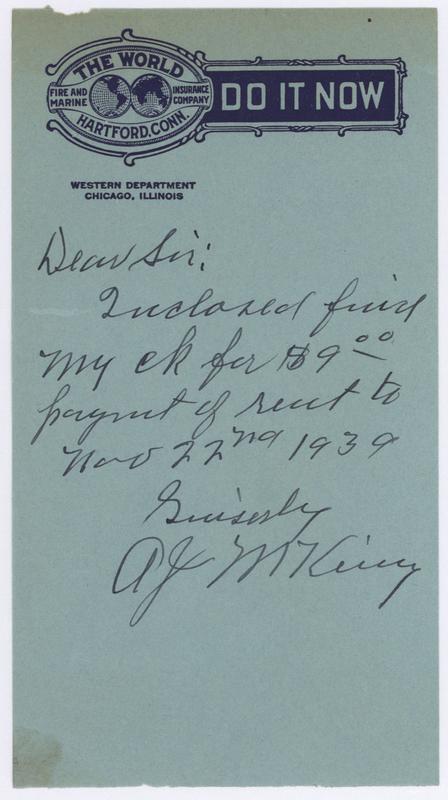 THE WORLD
FIRE AND MARINE INSURANCE COMPANY
HARTFORD, CONN.
DO IT NOW
WESTERN DEPARTMENT
CHICAGO, ILLINOIS
Dear Sir:
Inclosed find
my ck for $9.00
paymt of rent to
Nov 22nd 1939
Sincerly
AJ